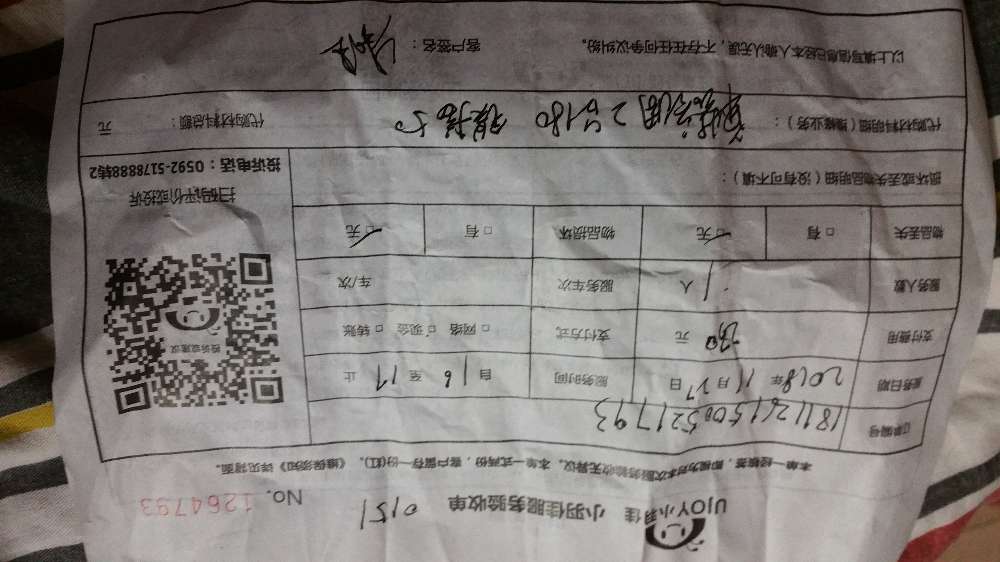 UJOY小羽佳 小羽佳服务验收单 0151 No. 1264793
本单一经核签，即视为对本次服务验收无异议。本单一式两份，客户留存一份(红)。《维保须知》详见背面。
订单编号 181126150052 1793
服务日期 2018年 11月 27日 服务时间 自 16 至 17 止
支付费用 元 支付方式 □ 网络 □ 现金 □ 转账
服务人数 1 人 服务车次 车/次
物品丢失 □ 有 ☑ 无 物品损坏 □ 有 ☑ 无
损坏或丢失物品明细（没有可不填）：
投诉或建议
扫码评价或投诉
投诉电话：0592-5178888转2
代购材料明细（维修业务）： 2台180 50 代购材料总额： 元
以上填写信息已经本人确认无误，不存在任何争议纠纷。 客户签名：